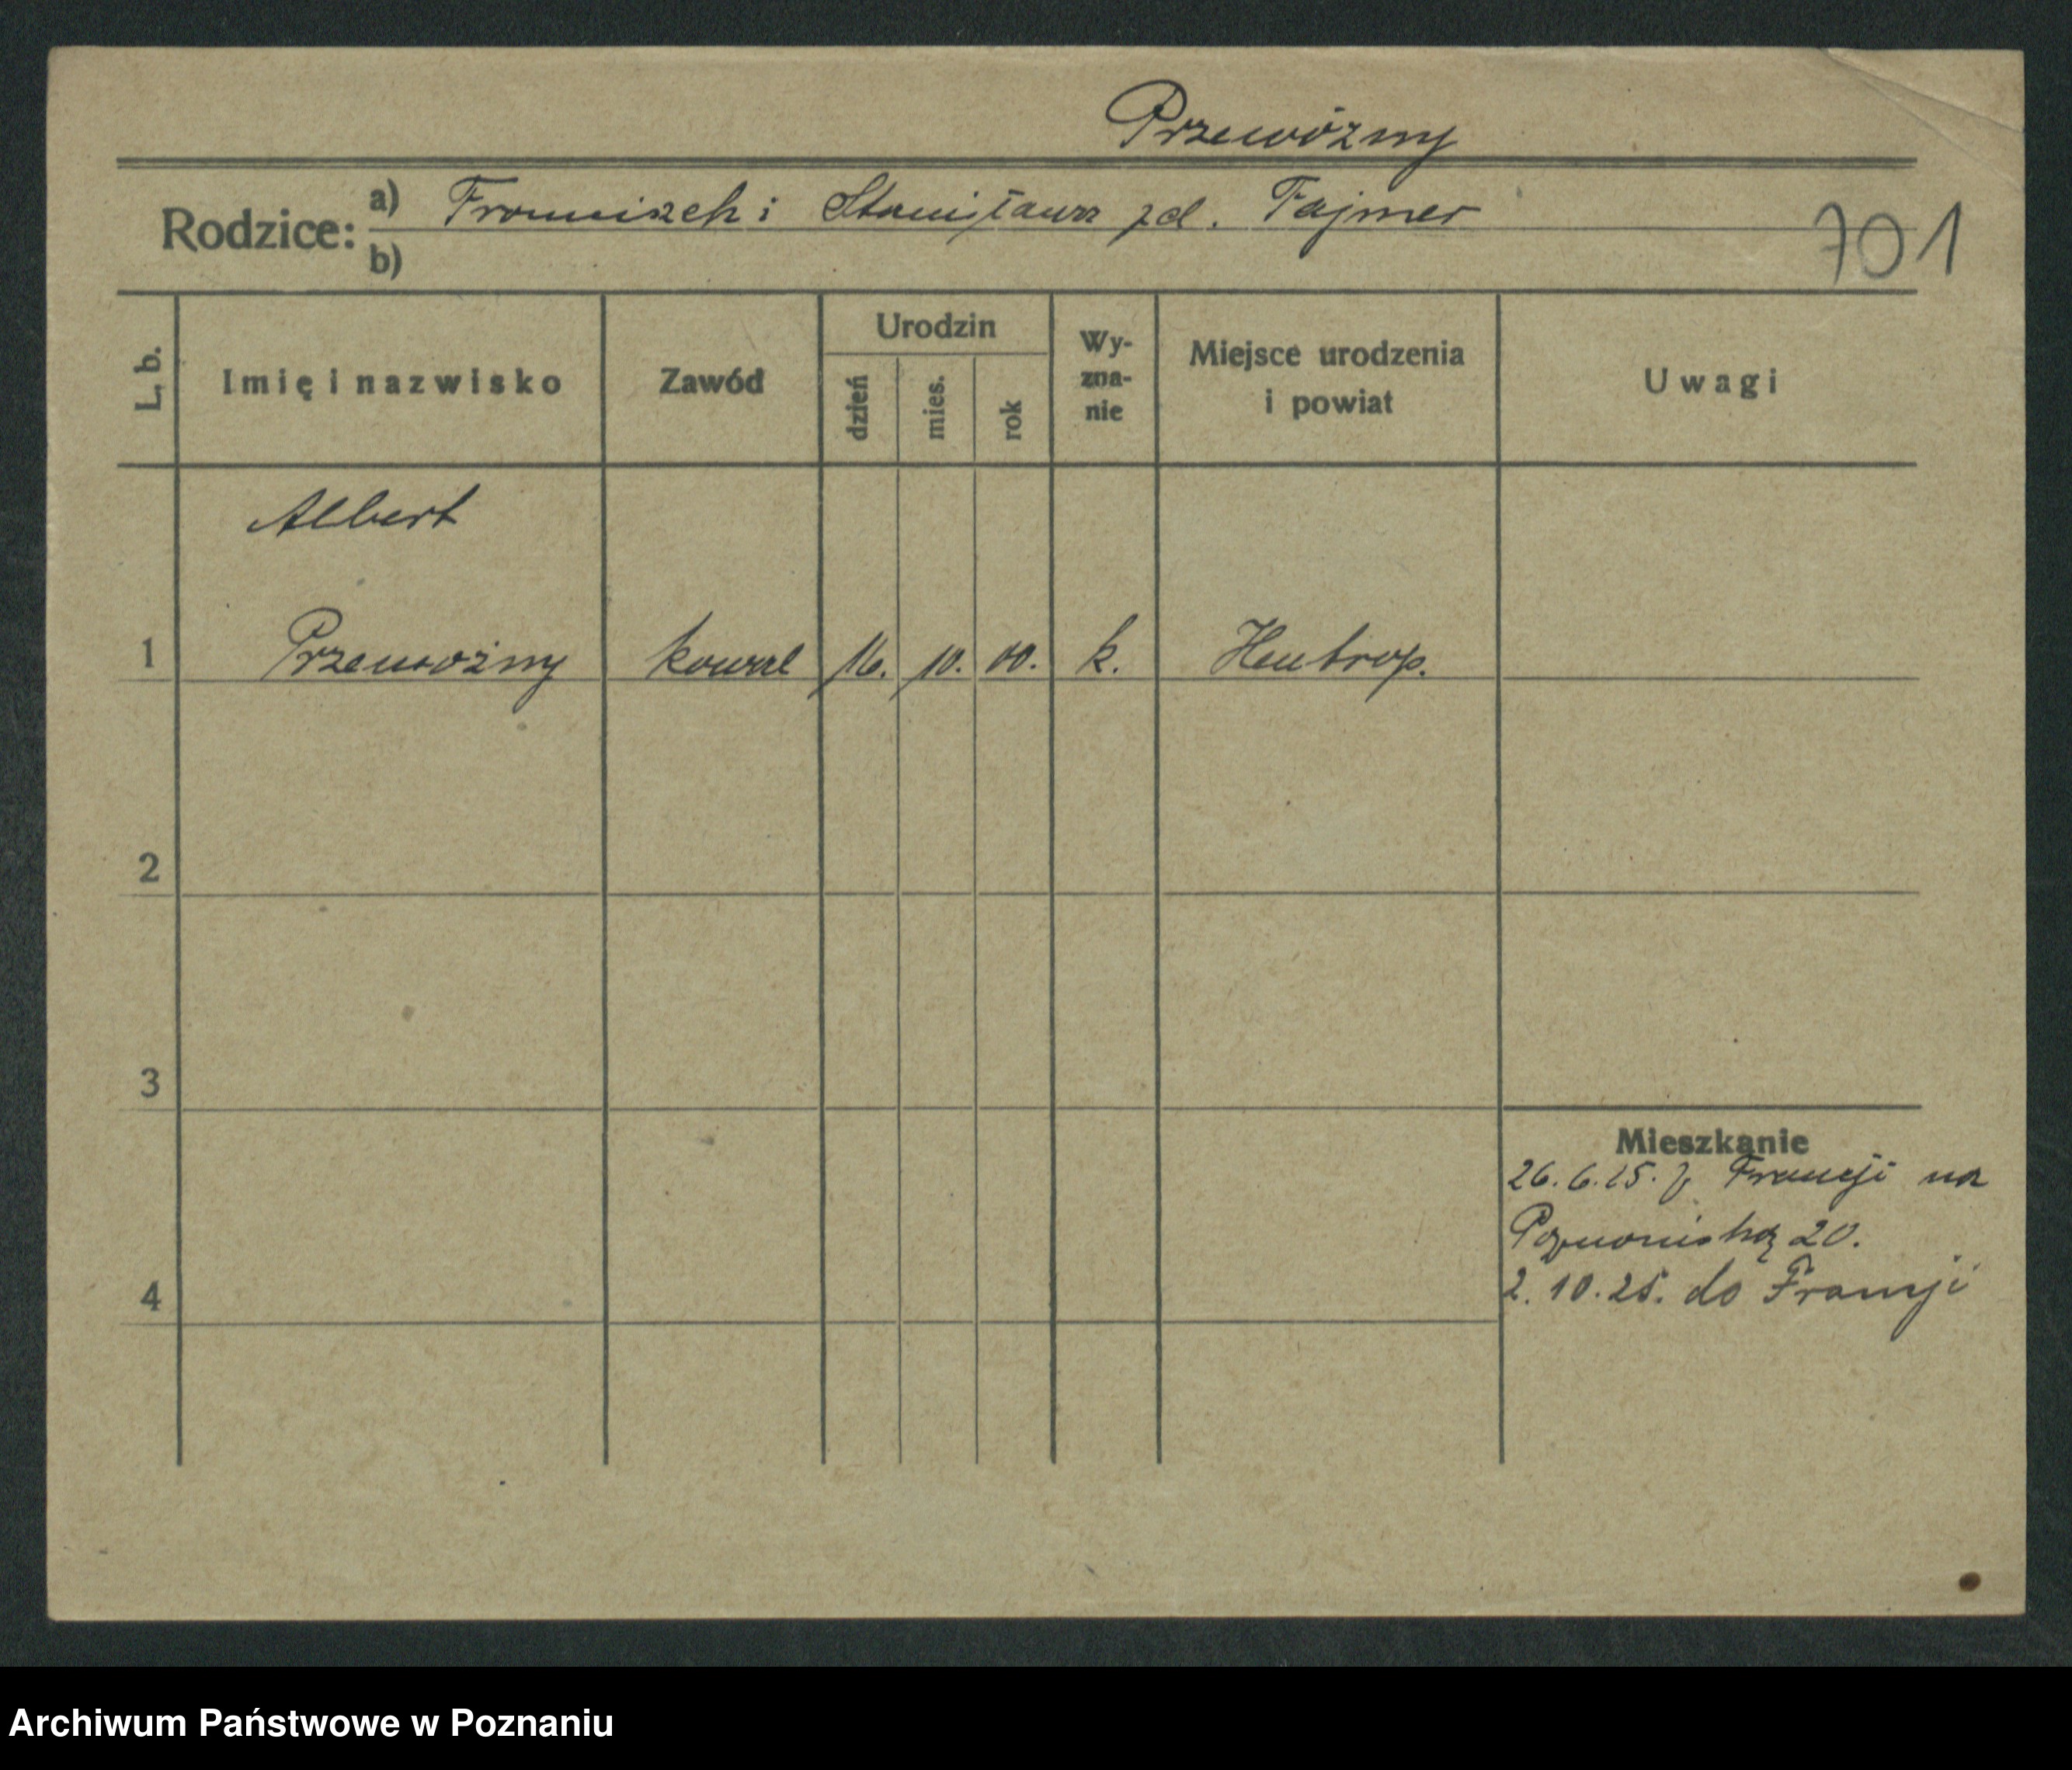 Przewóżny
Rodzice: a) Franciszek i Stanisława zd. Tajmer
b)
701
L. b. Imię i nazwisko Zawód Urodzin dzień mies. rok Wy-zna-nie Miejsce urodzenia i powiat Uwagi
Albert
1 Przewoźny kowal 16. 10. 00. k. Heutrop.
2
3
Mieszkanie
26.6.25. z Francji na
Poznańską 20.
4
2.10.25. do Francji
Archiwum Państwowe w Poznaniu